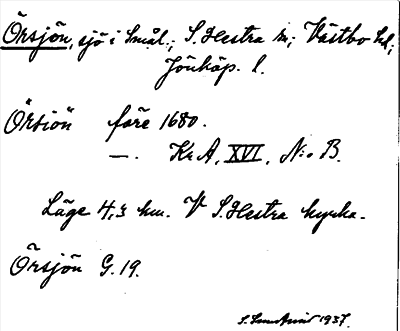 Örsjön, sjö i Smål.; S. Hestra sn; Västbo hd;
Jönköp. l.
Örsiön före 1680.
—. Kr A, XVI, N:o B.
Läge 4,3 km. V S. Hestra kyrka.
Örsjön G. 19.
1937.